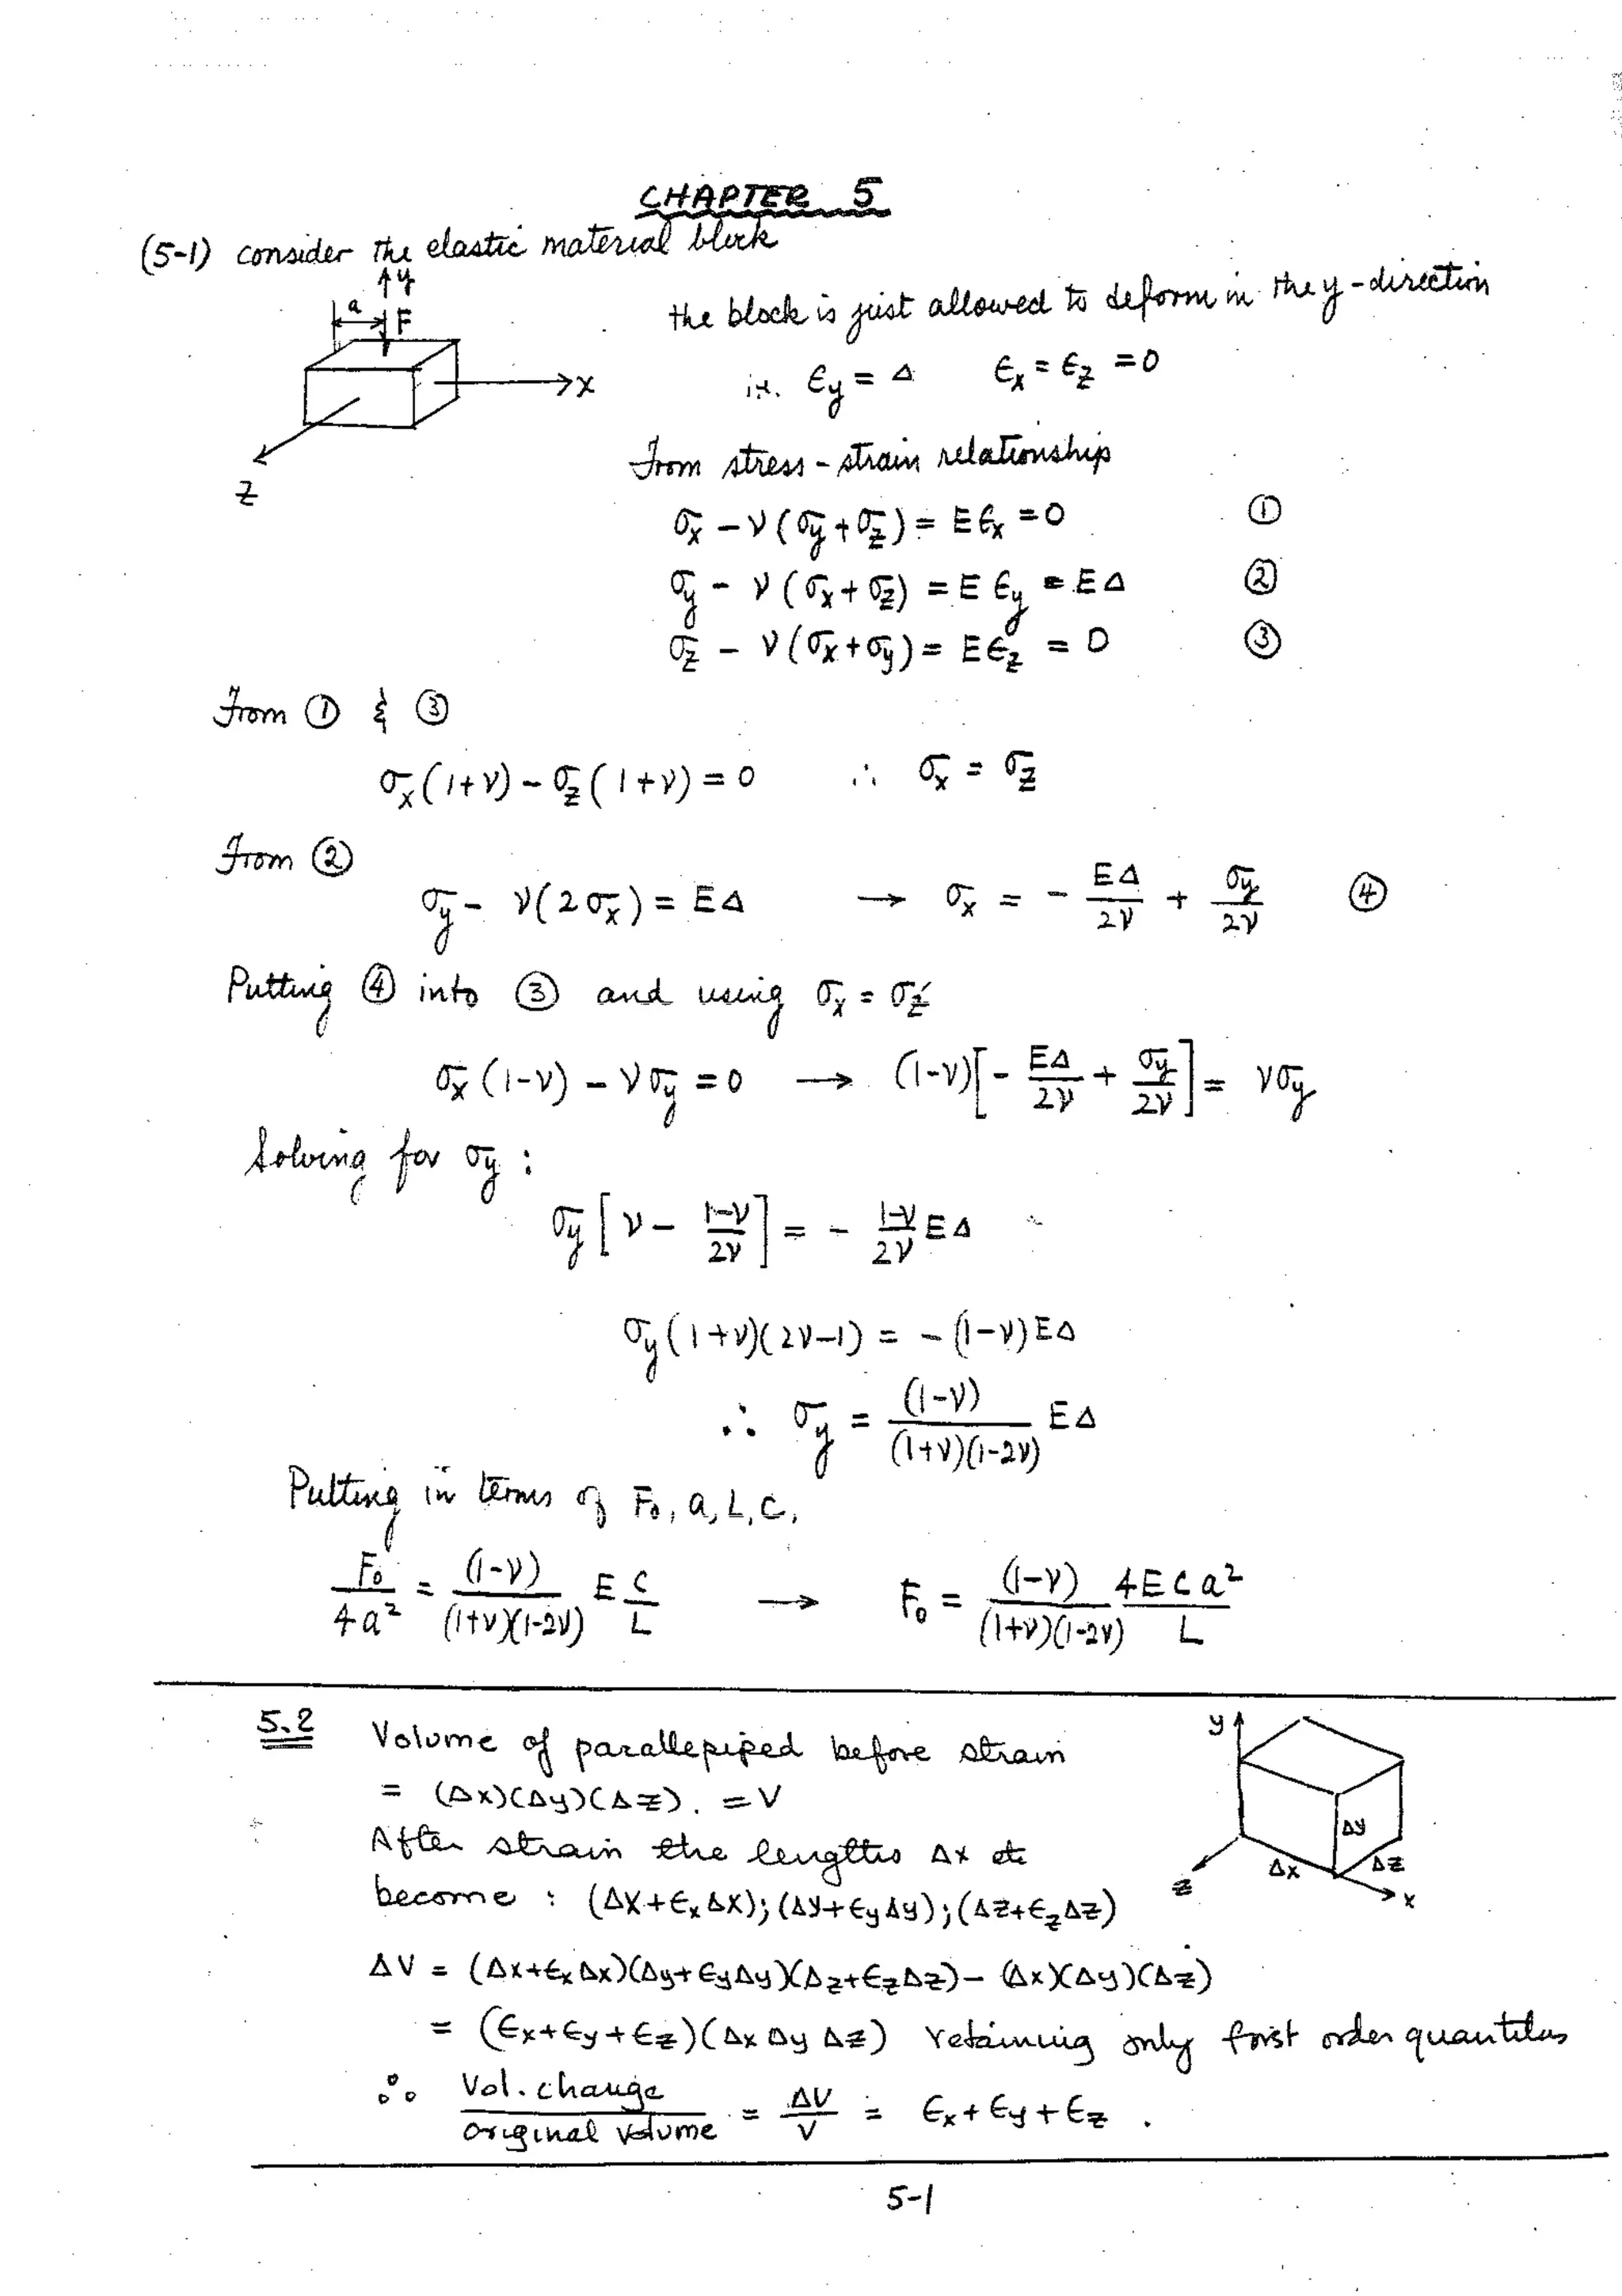 CHAPTER 5
(5-1) consider the elastic material block
y
a
F
x
z
the block is just allowed to deform in the y-direction
i.e. ϵy = Δ ϵx = ϵz = 0
From stress-strain relationship
σx - ν(σy + σz) = Eϵx = 0 ①
σy - ν(σx + σz) = Eϵy = EΔ ②
σz - ν(σx + σy) = Eϵz = 0 ③
From ① & ③
σx(1+ν) - σz(1+ν) = 0 ∴ σx = σz
From ②
σy - ν(2σx) = EΔ → σx = - EΔ/2ν + σy/2ν ④
Putting ④ into ③ and using σx = σz
σx(1-ν) - νσy = 0 → (1-ν)[- EΔ/2ν + σy/2ν] = νσy
Solving for σy :
σy[ν - (1-ν)/2ν] = - (1-ν)/2ν EΔ
σy(1+ν)(2ν-1) = -(1-ν)EΔ
∴ σy = (1-ν)/(1+ν)(1-2ν) EΔ
Putting in terms of F₀, a, L, C,
F₀/4a² = (1-ν)/(1+ν)(1-2ν) E C/L → F₀ = (1-ν)/(1+ν)(1-2ν) 4ECa²/L
5.2 Volume of parallepiped before strain
= (Δx)(Δy)(Δz). = V
After strain the lengths Δx etc
become : (Δx+ϵxΔx); (Δy+ϵyΔy); (Δz+ϵzΔz)
y
Δy
Δx
Δz
z
x
ΔV = (Δx+ϵxΔx)(Δy+ϵyΔy)(Δz+ϵzΔz) - (Δx)(Δy)(Δz)
= (ϵx+ϵy+ϵz)(Δx Δy Δz) retaining only first order quantities
∴ Vol. change/original volume = ΔV/V = ϵx + ϵy + ϵz .
5-1